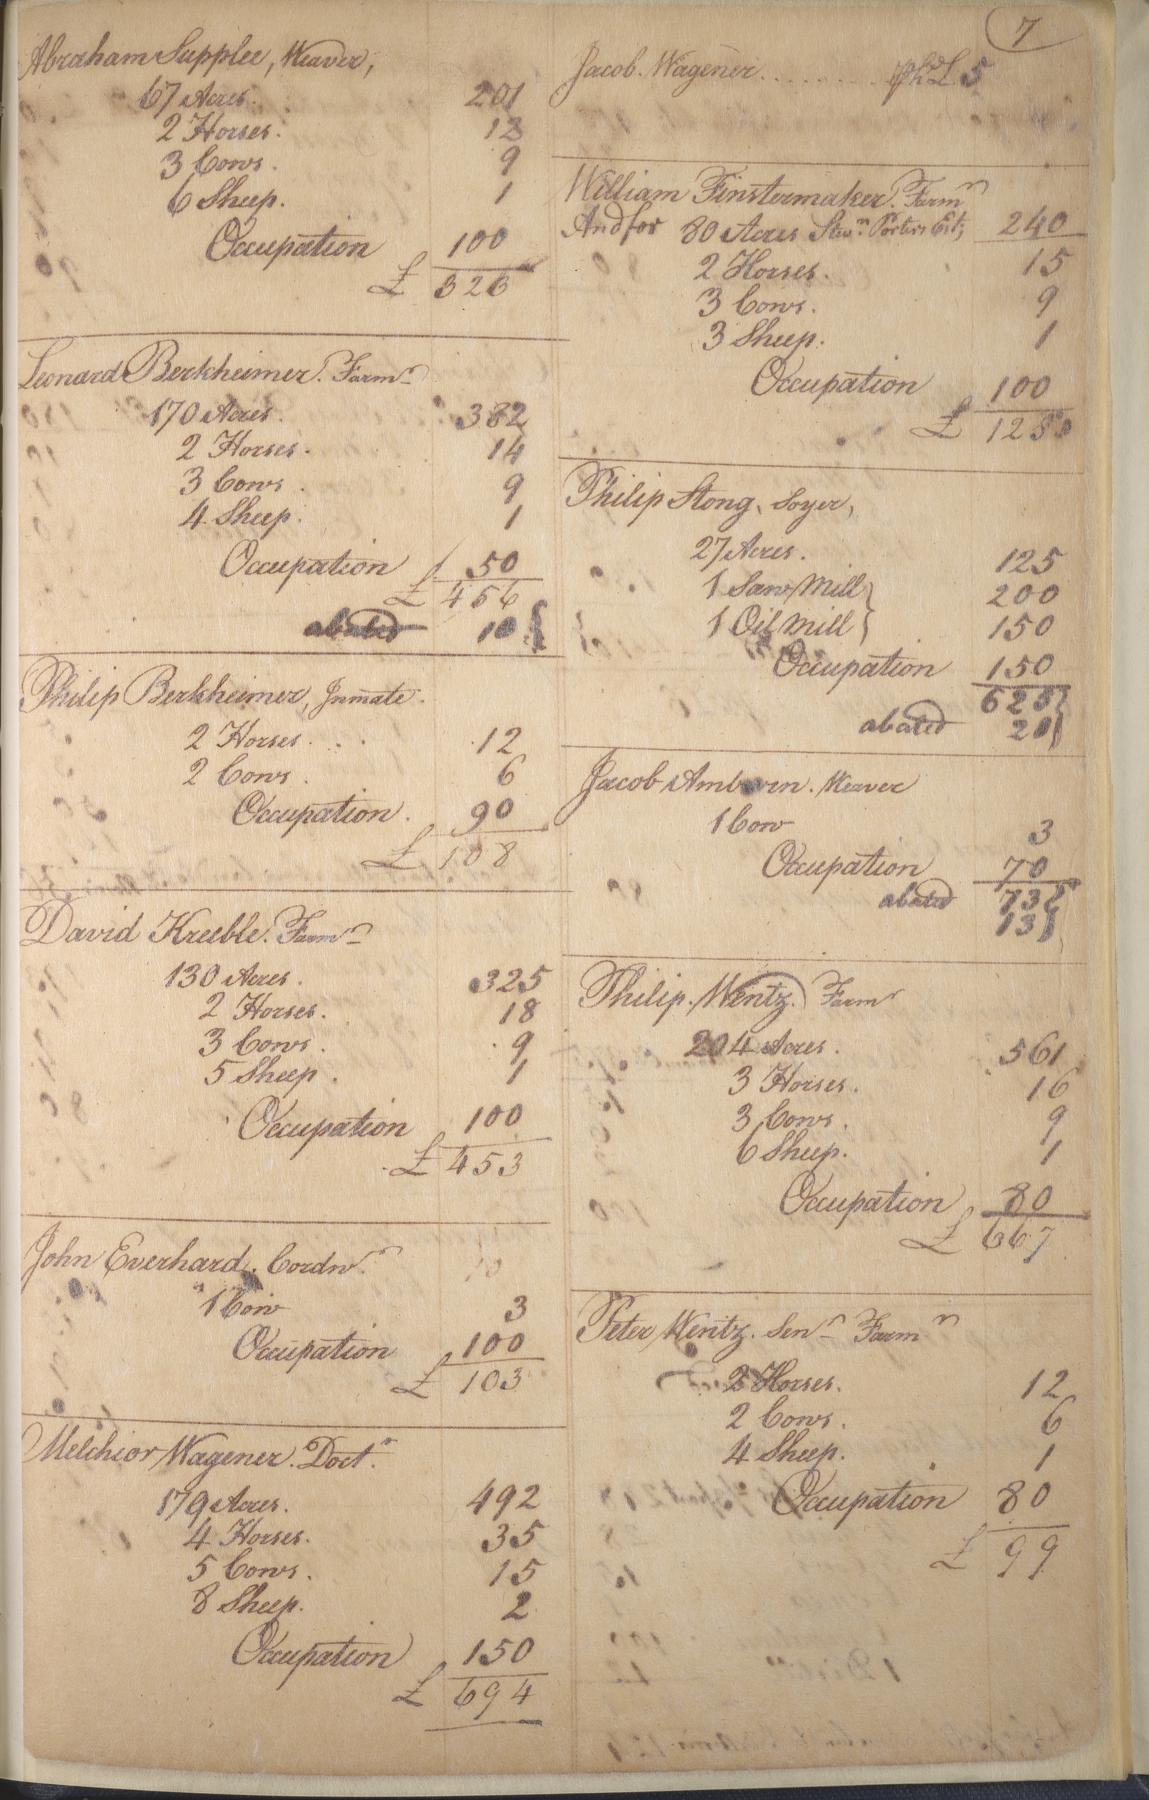 7
Abraham Supplee, Weaver,
67 Acres. 201
2 Horses. 12
3 Cows. 9
6 Sheep. 1
Occupation 100
£ 323
Leonard Berkheimer. Farmr
170 Acres. 382
2 Horses. 14
3 Cows. 9
4 Sheep. 1
Occupation 50
£ 456
abated 10
Philip Berkheimer, Inmate.
2 Horses. 12
2 Cows. 6
Occupation. 90
£ 108
David Kreeble. Farmr
130 Acres. 325
2 Horses. 18
3 Cows. 9
5 Sheep. 1
Occupation 100
£ 453
John Everhard. Cordwr.
1 Cow 3
Occupation 100
£ 103
Melchior Wagener. Doctr.
179 Acres. 492
4 Horses. 35
5 Cows. 15
8 Sheep. 2
Occupation 150
£ 694
Jacob Wagener. . . . . . . 5
William Finstermaker. Farmr
And for 80 Acres Porters Est; 240
2 Horses. 15
3 Cows. 9
3 Sheep. 1
Occupation 100
£ 125
Philip Stong, Soyer,
27 Acres. 125
1 Saw Mill} 200
1 Oil Mill} 150
Occupation 150
625}
abated 20}
Jacob Amborn. Weaver
1 Cow 3
Occupation 70
73}
abated 13}
Philip. Wentz. Farmr
204 Acres. 561
3 Horses. 16
3 Cows. 9
6 Sheep. 1
Occupation 80
£ 667
Peter Wentz. Senr Farmr
2 Horses. 12
2 Cows. 6
4 Sheep. 1
Occupation 80
£ 99